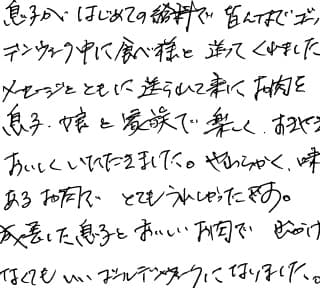 息子がはじめての給料で皆んなでゴール
デンウィーク中に食べ様と送ってくれました
メッセージとともに送られて来たお肉を
息子、嫁と家族で楽しく、
おいしくいただきました。やわらかく、味
あるお肉で とてもうれしかったです。
成長した息子とおいしいお肉で 出かけ
なくてもいいゴールデンウィークになりました。